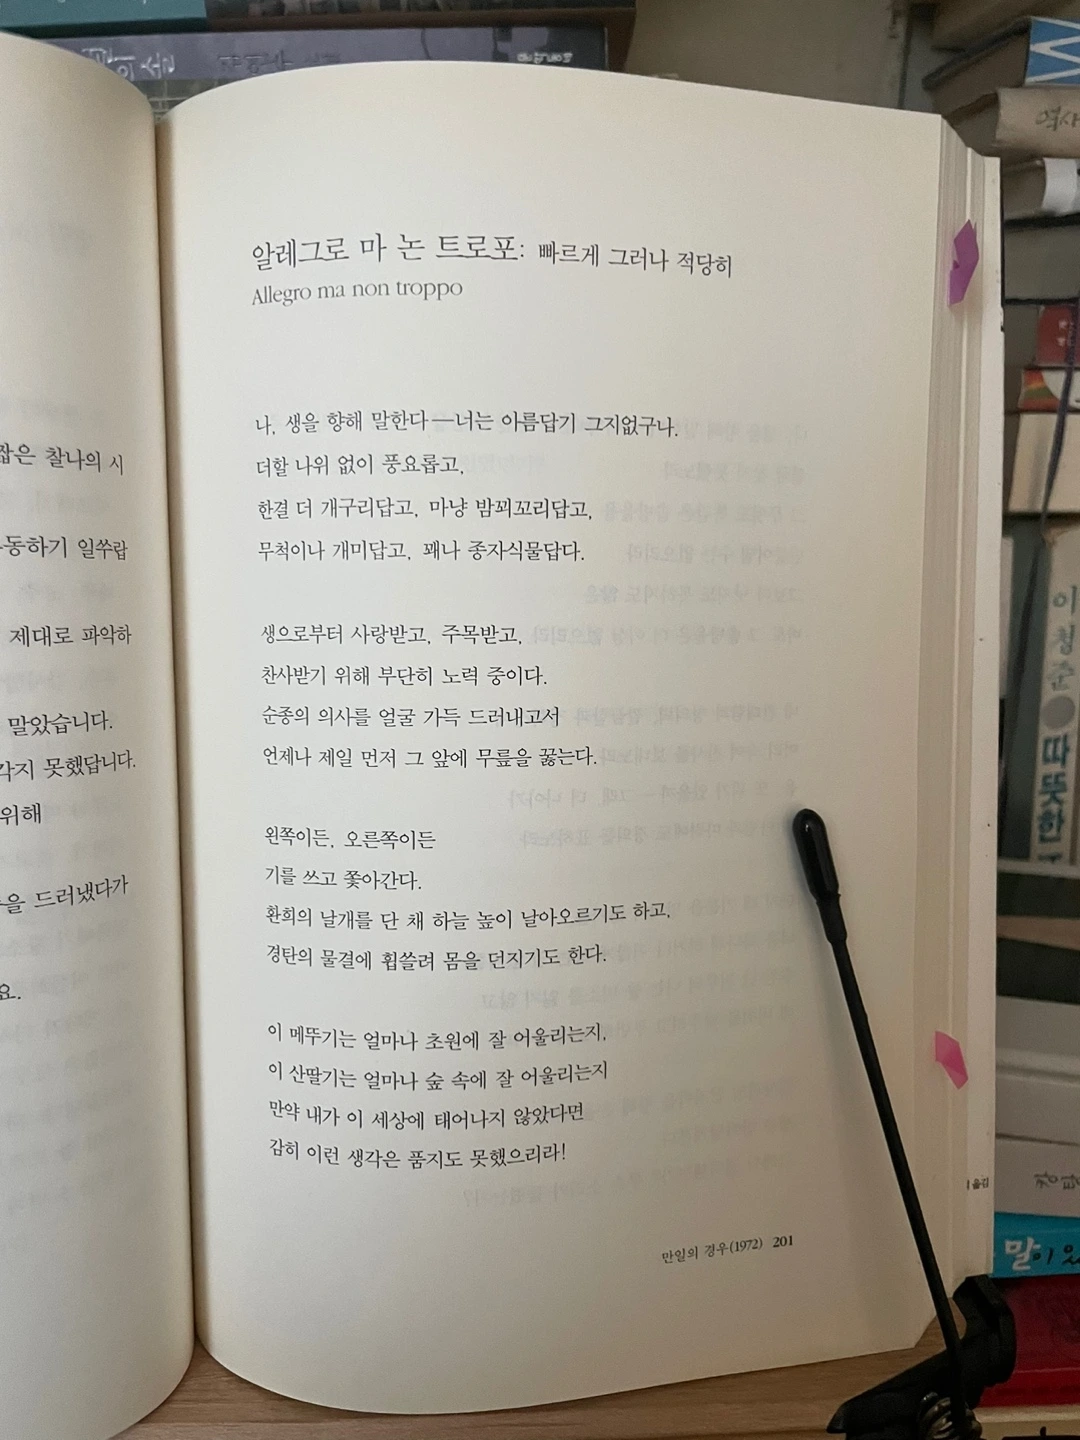 알레그로 마 논 트로포: 빠르게 그러나 적당히
Allegro ma non troppo
나, 생을 향해 말한다—너는 아름답기 그지없구나.
더할 나위 없이 풍요롭고,
한결 더 개구리답고, 마냥 밤꾀꼬리답고,
무척이나 개미답고, 꽤나 종자식물답다.
생으로부터 사랑받고, 주목받고,
찬사받기 위해 부단히 노력 중이다.
순종의 의사를 얼굴 가득 드러내고서
언제나 제일 먼저 그 앞에 무릎을 꿇는다.
왼쪽이든, 오른쪽이든
기를 쓰고 쫓아간다.
환희의 날개를 단 채 하늘 높이 날아오르기도 하고,
경탄의 물결에 휩쓸려 몸을 던지기도 한다.
이 메뚜기는 얼마나 초원에 잘 어울리는지,
이 산딸기는 얼마나 숲 속에 잘 어울리는지
만약 내가 이 세상에 태어나지 않았다면
감히 이런 생각은 품지도 못했으리라!
만일의 경우(1972) 201
찰나의 시
동하기 일쑤랍
제대로 파악하
말았습니다.
각지 못했답니다.
위해
을 드러냈다가
요.
역사
이청준
따뜻한
옮김
말이 있